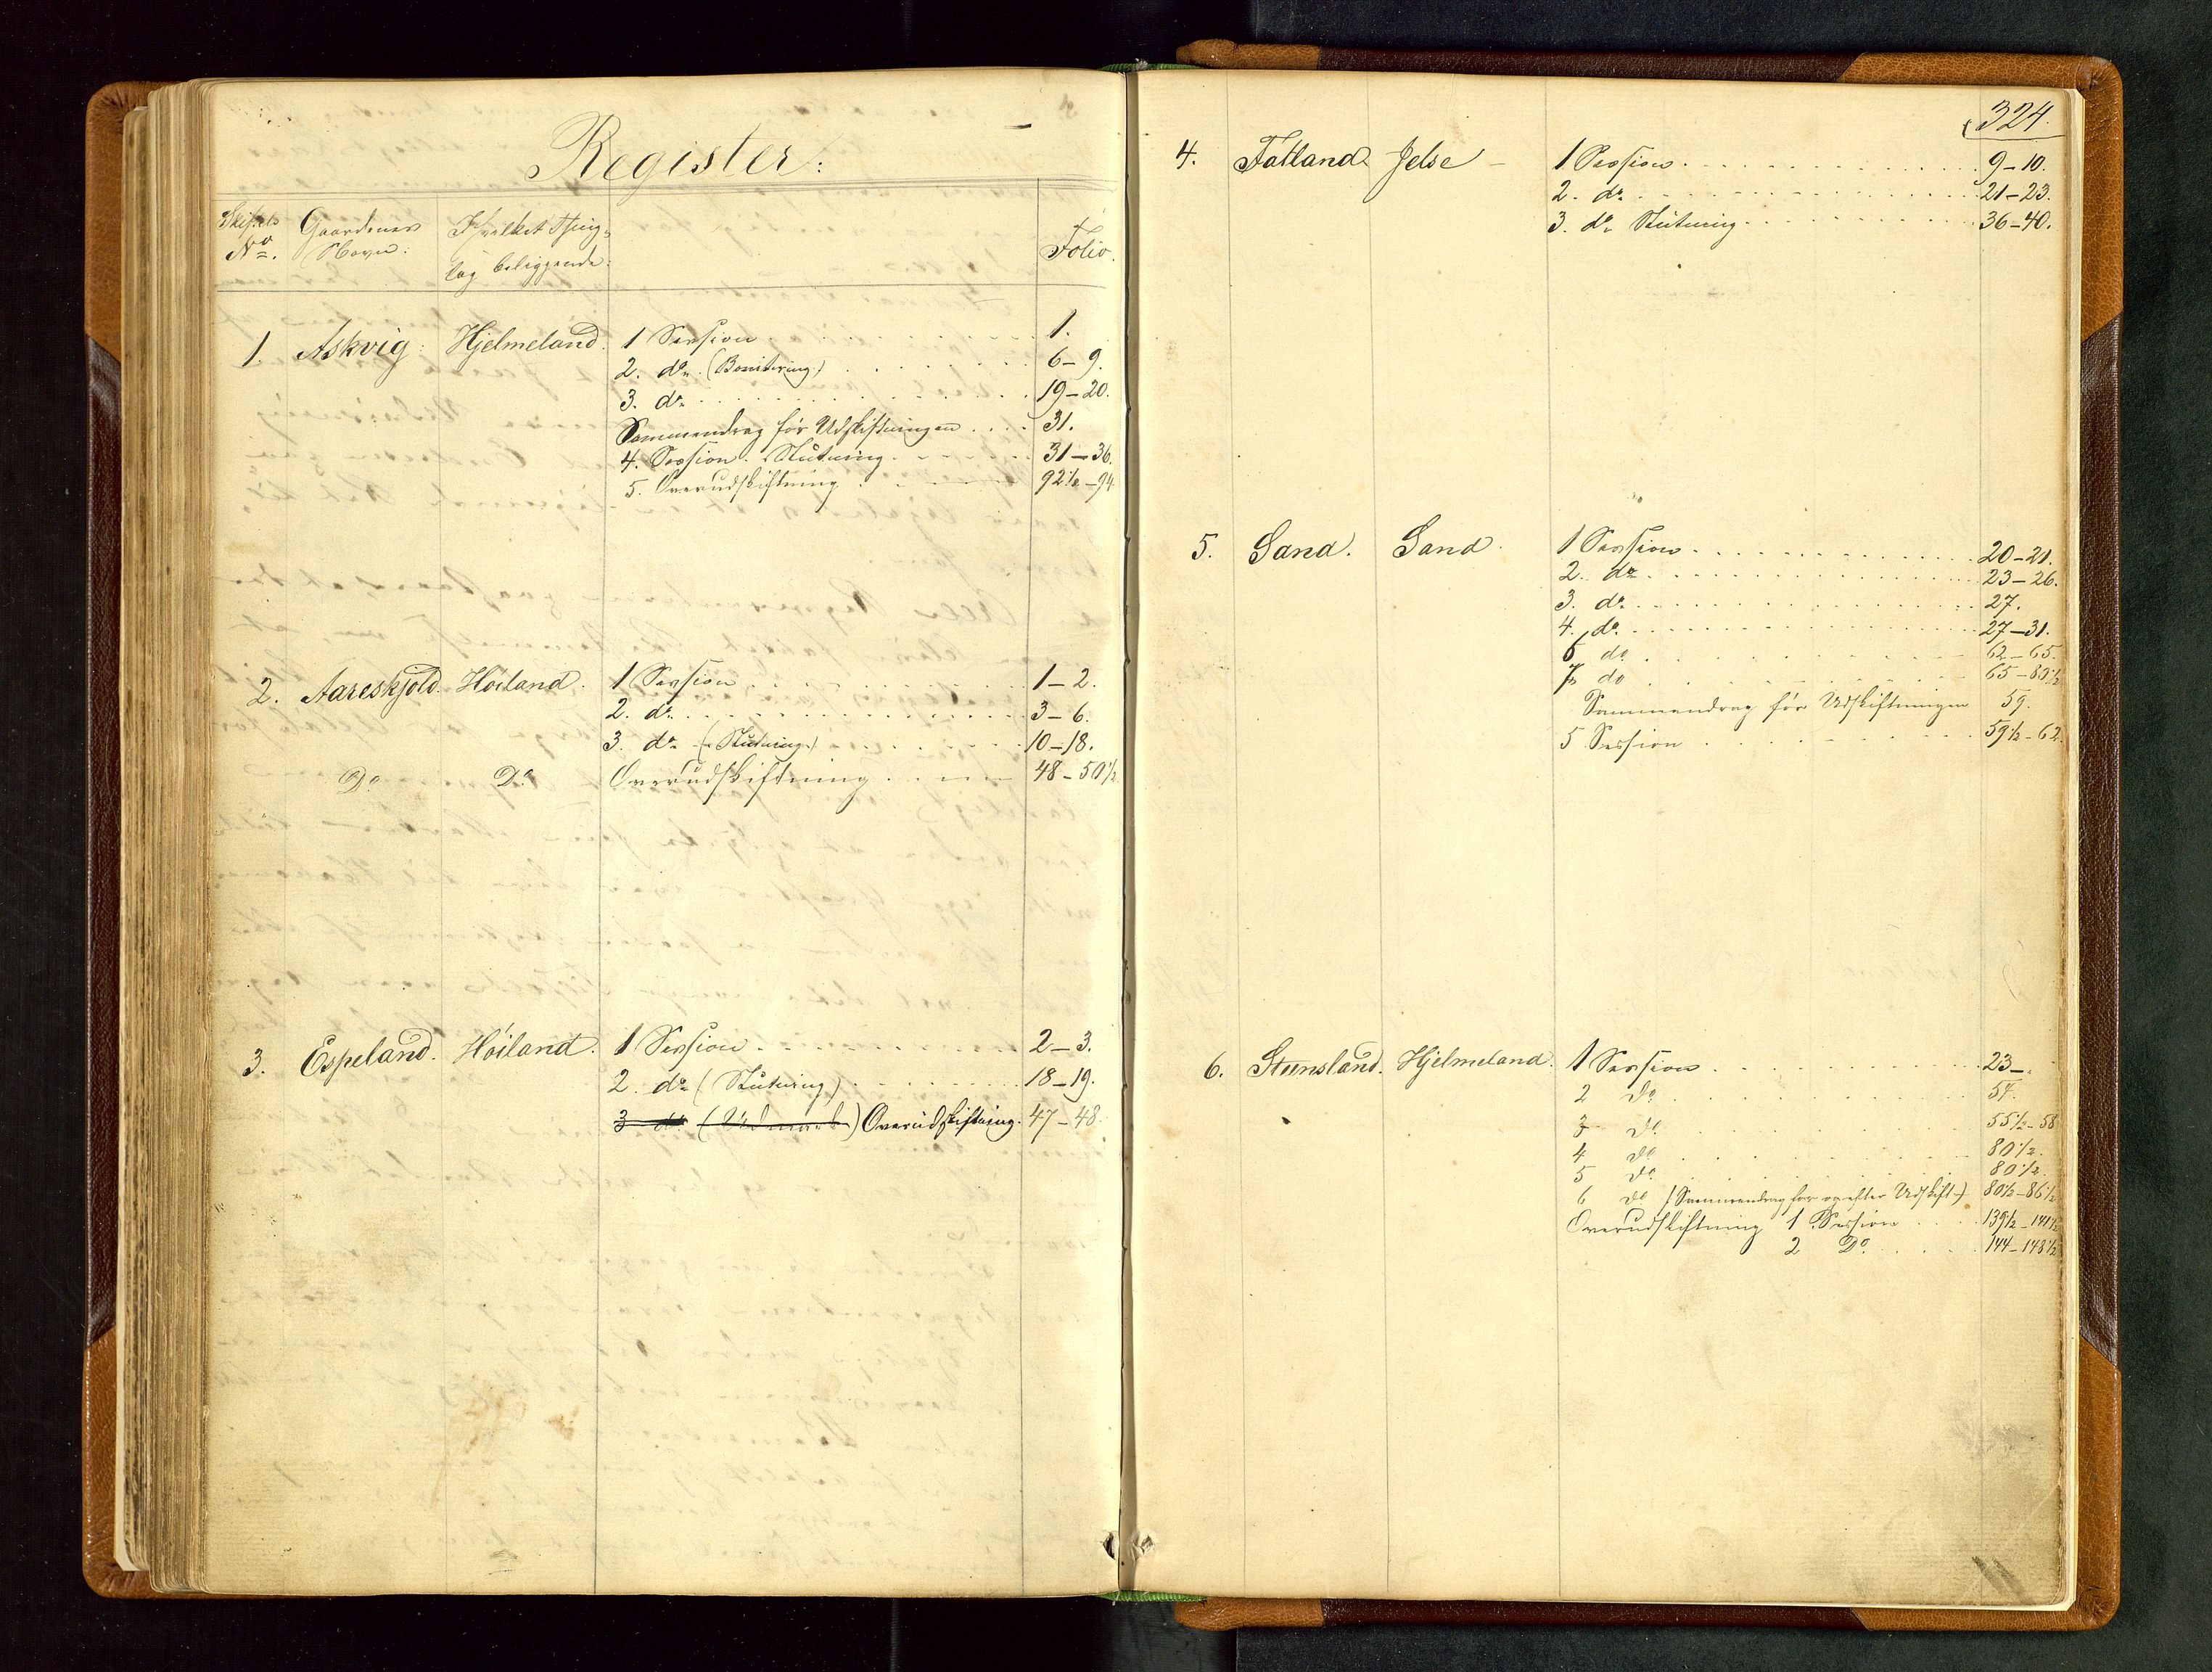 Register:
Skifets No. Gaardenes Navn: I hvilket Thing-
lag beliggende: Folio.
1. Askvig. Hjelmeland. 1 Session 1.
2. do. (Bonitering) 6-9.
3. do. 19-20.
Sammendrag før Udskiftningen 31.
4. Session. Slutning 31-36.
5. Overudskiftning 92½-94
2. Aareskjold. Höiland. 1 Session 1-2.
2. do. 3-6.
3. do. (Slutning) 10-18.
Do Do Overudskiftning 48-50½
3. Espeland. Höiland. 1 Session 2-3.
2. do (Slutning) 18-19.
3 do (Udmark) Overudskiftning. 47-48.
324.
4. Fatland Jelse 1 Session 9-10.
2. do. 21-23.
3. do. Slutning 36-40.
5. Sand. Sand. 1 Session 20-21.
2. do 23-26.
3. do. 27.
4. do. 27-31.
6 do 62-65.
7 do 65-80½
Sammendrag før Udskiftningen 59.
5 Session 59½-62
6. Steensland. Hjelmeland. 1 Session 23-
2 Do 54.
3 Do 55½-58
4 do 80½.
5 do 80½.
6 do (Sammendrag før og efter Udskift.) 80½-86½
Overudskiftning 1 Session 139½-141½
2 Do 144-148½